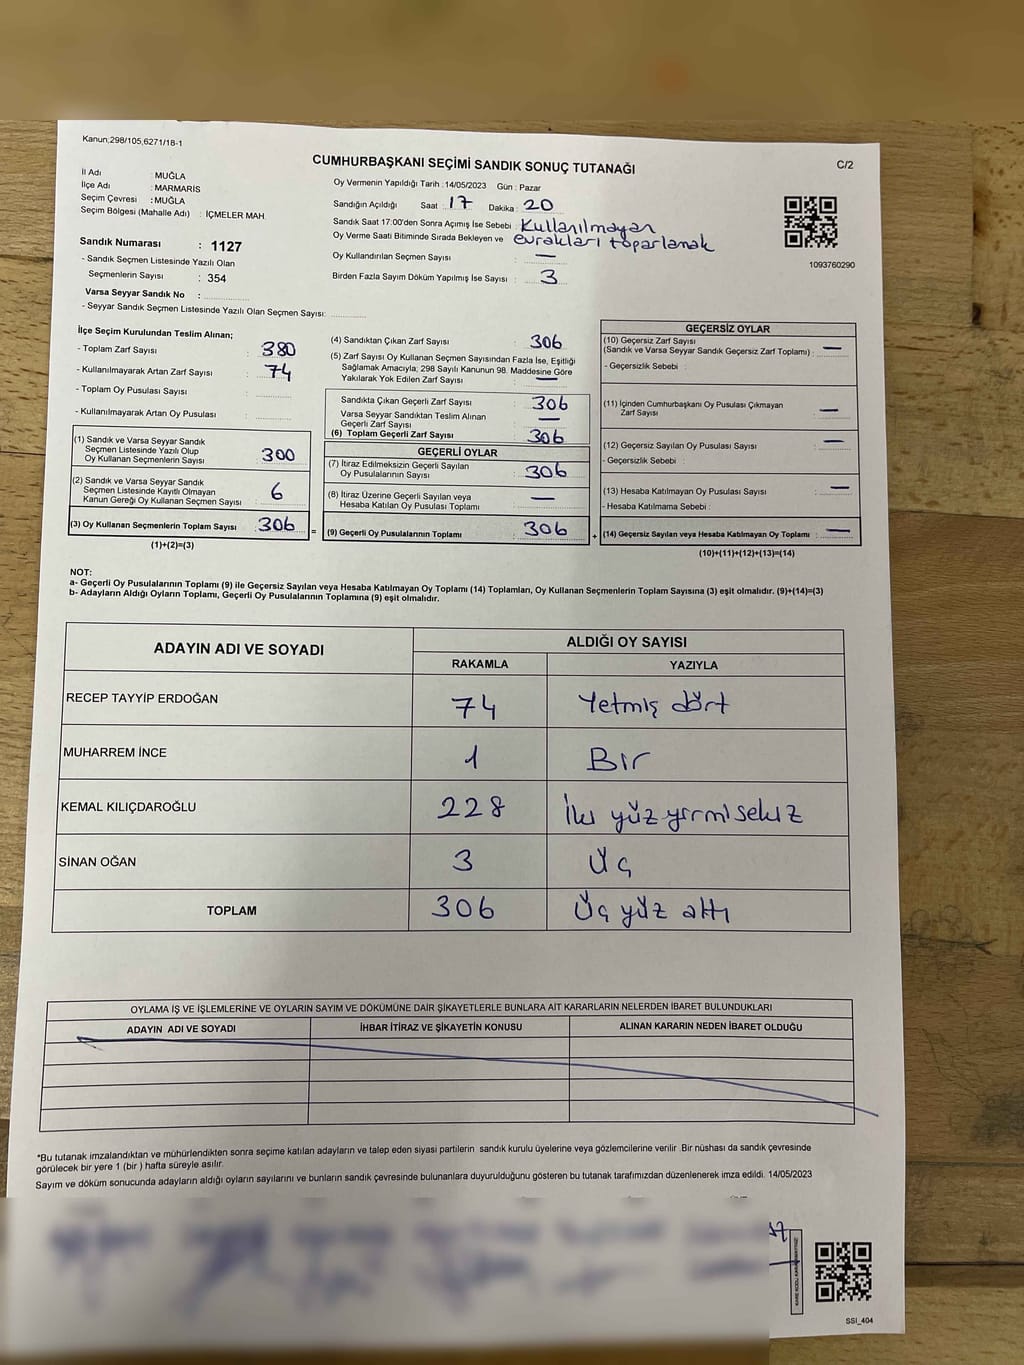 Kanun:298/105,6271/18-1
CUMHURBAŞKANI SEÇİMİ SANDIK SONUÇ TUTANAĞI
C/2
İl Adı : MUĞLA
İlçe Adı : MARMARİS
Seçim Çevresi : MUĞLA
Seçim Bölgesi (Mahalle Adı) : İÇMELER MAH.
Sandık Numarası : 1127
- Sandık Seçmen Listesinde Yazılı Olan
Seçmenlerin Sayısı : 354
Varsa Seyyar Sandık No :
- Seyyar Sandık Seçmen Listesinde Yazılı Olan Seçmen Sayısı:
Oy Vermenin Yapıldığı Tarih : 14/05/2023 Gün : Pazar
Sandığın Açıldığı Saat : 17 Dakika : 20
Sandık Saat 17:00'den Sonra Açımış İse Sebebi : Kullanılmayan
Oy Verme Saati Bitiminde Sırada Bekleyen ve evrakları toparlamak
Oy Kullandırılan Seçmen Sayısı : —
Birden Fazla Sayım Döküm Yapılmış İse Sayısı : 3
1093760290
İlçe Seçim Kurulundan Teslim Alınan;
- Toplam Zarf Sayısı : 380
- Kullanılmayarak Artan Zarf Sayısı : 74
- Toplam Oy Pusulası Sayısı :
- Kullanılmayarak Artan Oy Pusulası :
(1) Sandık ve Varsa Seyyar Sandık
Seçmen Listesinde Yazılı Olup
Oy Kullanan Seçmenlerin Sayısı : 300
(2) Sandık ve Varsa Seyyar Sandık
Seçmen Listesinde Kayıtlı Olmayan
Kanun Gereği Oy Kullanan Seçmen Sayısı : 6
(3) Oy Kullanan Seçmenlerin Toplam Sayısı : 306
(1)+(2)=(3)
(4) Sandıktan Çıkan Zarf Sayısı : 306
(5) Zarf Sayısı Oy Kullanan Seçmen Sayısından Fazla İse, Eşitliği
Sağlamak Amacıyla; 298 Sayılı Kanunun 98. Maddesine Göre
Yakılarak Yok Edilen Zarf Sayısı : —
Sandıkta Çıkan Geçerli Zarf Sayısı : 306
Varsa Seyyar Sandıktan Teslim Alınan
Geçerli Zarf Sayısı : —
(6) Toplam Geçerli Zarf Sayısı : 306
GEÇERLİ OYLAR
(7) İtiraz Edilmeksizin Geçerli Sayılan
Oy Pusulalarının Sayısı : 306
(8) İtiraz Üzerine Geçerli Sayılan veya
Hesaba Katılan Oy Pusulası Toplamı : —
= (9) Geçerli Oy Pusulalarının Toplamı : 306
GEÇERSİZ OYLAR
(10) Geçersiz Zarf Sayısı
(Sandık ve Varsa Seyyar Sandık Geçersiz Zarf Toplamı) : —
- Geçersizlik Sebebi :
(11) İçinden Cumhurbaşkanı Oy Pusulası Çıkmayan
Zarf Sayısı : —
(12) Geçersiz Sayılan Oy Pusulası Sayısı : —
- Geçersizlik Sebebi :
(13) Hesaba Katılmayan Oy Pusulası Sayısı : —
- Hesaba Katılmama Sebebi :
+ (14) Geçersiz Sayılan veya Hesaba Katılmayan Oy Toplamı : —
(10)+(11)+(12)+(13)=(14)
NOT:
a- Geçerli Oy Pusulalarının Toplamı (9) ile Geçersiz Sayılan veya Hesaba Katılmayan Oy Toplamı (14) Toplamları, Oy Kullanan Seçmenlerin Toplam Sayısına (3) eşit olmalıdır. (9)+(14)=(3)
b- Adayların Aldığı Oyların Toplamı, Geçerli Oy Pusulalarının Toplamına (9) eşit olmalıdır.
ADAYIN ADI VE SOYADI
ALDIĞI OY SAYISI
RAKAMLA YAZIYLA
RECEP TAYYİP ERDOĞAN 74 Yetmiş dört
MUHARREM İNCE 1 Bir
KEMAL KILIÇDAROĞLU 228 İki yüz yirmi sekiz
SİNAN OĞAN 3 Üç
TOPLAM 306 Üç yüz altı
OYLAMA İŞ VE İŞLEMLERİNE VE OYLARIN SAYIM VE DÖKÜMÜNE DAİR ŞİKAYETLERLE BUNLARA AİT KARARLARIN NELERDEN İBARET BULUNDUKLARI
ADAYIN ADI VE SOYADI İHBAR İTİRAZ VE ŞİKAYETİN KONUSU ALINAN KARARIN NEDEN İBARET OLDUĞU
*Bu tutanak imzalandıktan ve mühürlendikten sonra seçime katılan adayların ve talep eden siyasi partilerin sandık kurulu üyelerine veya gözlemcilerine verilir .Bir nüshası da sandık çevresinde
görülecek bir yere 1 (bir ) hafta süreyle asılır.
Sayım ve döküm sonucunda adayların aldığı oyların sayılarını ve bunların sandık çevresinde bulunanlara duyurulduğunu gösteren bu tutanak tarafımızdan düzenlenerek imza edildi. 14/05/2023
SSI_404